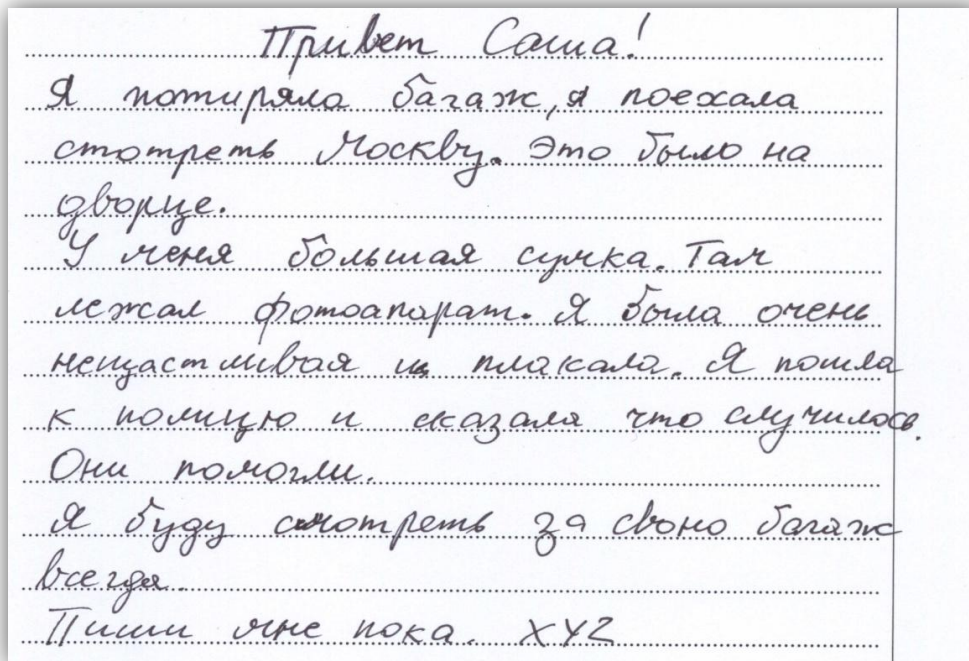 Привет Саша!
Я потиряла багаж, я поехала
стотреть Москву. Это было на
дворце.
У меня большая сумка. Там
лежал фотоапарат. Я была очень
нещастливая и плакала. Я пошла
к полицю и сказала что случилось.
Они помогли.
Я буду смотреть за своно багаж
всегда.
Пиши мне пока. XYZ